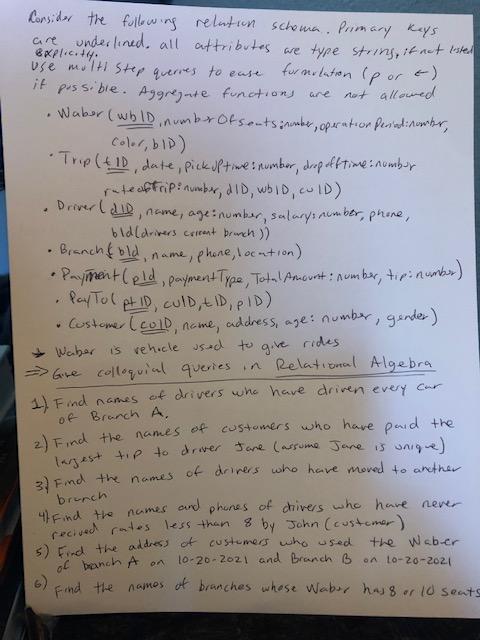 Consider the following relation schema. Primary keys
are underlined. all attributes are type string, if not listed
explicity.
Use multi step querves to ease formulation (p or ←)
if possible. Aggregate functions are not allowed
• Waber (wbID, number Of seats: number, operation Period: number,
Color, bID)
• Trip (tID, date, pickuptime: number, dropofftime: number
rateofTrip: number, dID, wbID, cuID)
• Driver (dID, name, age: number, salary: number, phone,
bId (drivers current branch))
• Branch (bId, name, phone, location)
• Payment (pId, paymentType, TotalAmount: number, tip: number)
• PayTo (ptID, cuID, tID, pID)
• Customer (cuID, name, address, age: number, gender)
→ Waber is vehicle used to give rides
⇒ Give colloquial queries in Relational Algebra
1) Find names of drivers who have driven every car
of Branch A.
2) Find the names of customers who have paid the
largest tip to driver Jane (assume Jane is unique)
3) Find the names of drivers who have moved to another
branch
4) Find the names and phones of drivers who have never
recived rates less than 8 by John (customer)
5) Find the address of customers who used the Waber
of branch A on 10-20-2021 and Branch B on 10-20-2021
6) Find the names of branches whose Waber has 8 or 10 seats